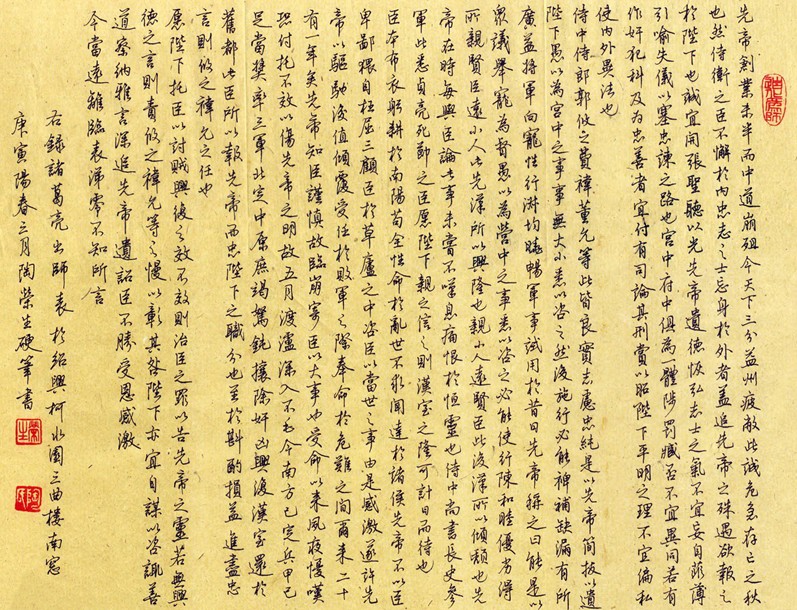 先帝創業未半而中道崩殂今天下三分益州疲敝此誠危急存亡之秋
也然侍衛之臣不懈於內忠志之士忘身於外者蓋追先帝之殊遇欲報之
於陛下也誠宜開張聖聽以光先帝遺德恢弘志士之氣不宜妄自菲薄
引喻失儀以塞忠諫之路也宮中府中俱為一體陟罰臧否不宜異同若有
作奸犯科及為忠善者宜付有司論其刑賞以昭陛下平明之理不宜偏私
使內外異法也
侍中侍郎郭攸之費禕董允等此皆良實志慮忠純是以先帝簡拔以遺
陛下愚以為宮中之事事無大小悉以咨之然後施行必能裨補缺漏有所
廣益將軍向寵性行淑均曉暢軍事試用於昔日先帝稱之曰能是以
眾議舉寵為督愚以為營中之事悉以咨之必能使行陳和睦優劣得
所親賢臣遠小人此先漢所以興隆也親小人遠賢臣此後漢所以傾頹也先
帝在時每與臣論此事未嘗不嘆息痛恨於桓靈也侍中尚書長史參
軍此悉貞亮死節之臣愿陛下親之信之則漢室之隆可計日而待也
臣本布衣躬耕於南陽苟全性命於亂世不求聞達於諸侯先帝不以臣
卑鄙猥自枉屈三顧臣於草廬之中咨臣以當世之事由是感激遂許先
帝以驅馳後值傾覆受任於敗軍之際奉命於危難之間爾來二十
有一年矣先帝知臣謹慎故臨崩寄臣以大事也受命以來夙夜憂嘆
恐付托不效以傷先帝之明故五月渡瀘深入不毛今南方已定兵甲已
足當獎率三軍北定中原庶竭駑鈍攘除奸凶興復漢室還於
舊都此臣所以報先帝而忠陛下之職分也至於斟酌損益進盡忠
言則攸之禕允之任也
愿陛下托臣以討賊興復之效不效則治臣之罪以告先帝之靈若無興
德之言則責攸之禕允等之慢以彰其咎陛下亦宜自謀以咨諏善
道察納雅言深追先帝遺詔臣不勝受恩感激
今當遠離臨表涕零不知所言
右錄諸葛亮出師表於紹興柯水園三曲樓南窗
庚寅陽春三月陶榮生硬筆書